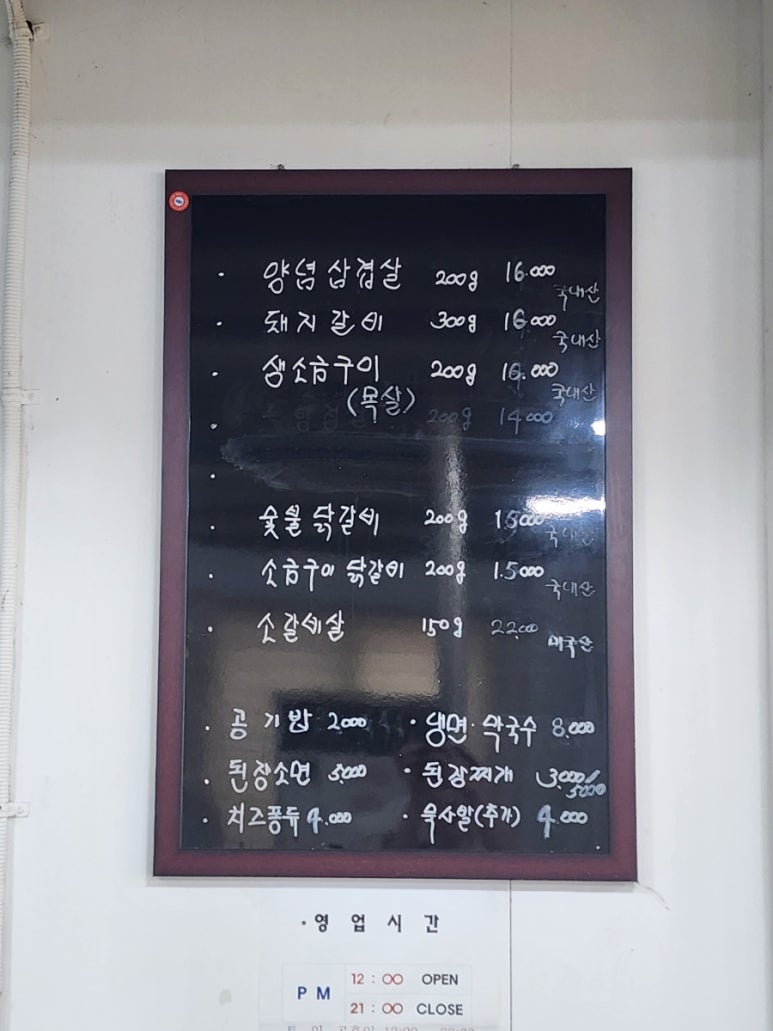 · 양념 삼겹살 200g 16.000 국내산
· 돼지갈비 300g 16.000 국내산
· 생소금구이 200g 16.000 국내산
(목살)
· 200g 14.000
·
· 숯불닭갈비 200g 15.000 국내산
· 소금구이 닭갈비 200g 1.5000 국내산
· 소갈비살 150g 22.000 미국산
· 공기밥 2000 · 냉면·막국수 8.000
· 된장소면 5.000 · 된장찌개 3.000/5000
· 치즈퐁듀 4.000 · (추가) 4.000
· 영 업 시 간
PM 12:00 OPEN
21:00 CLOSE